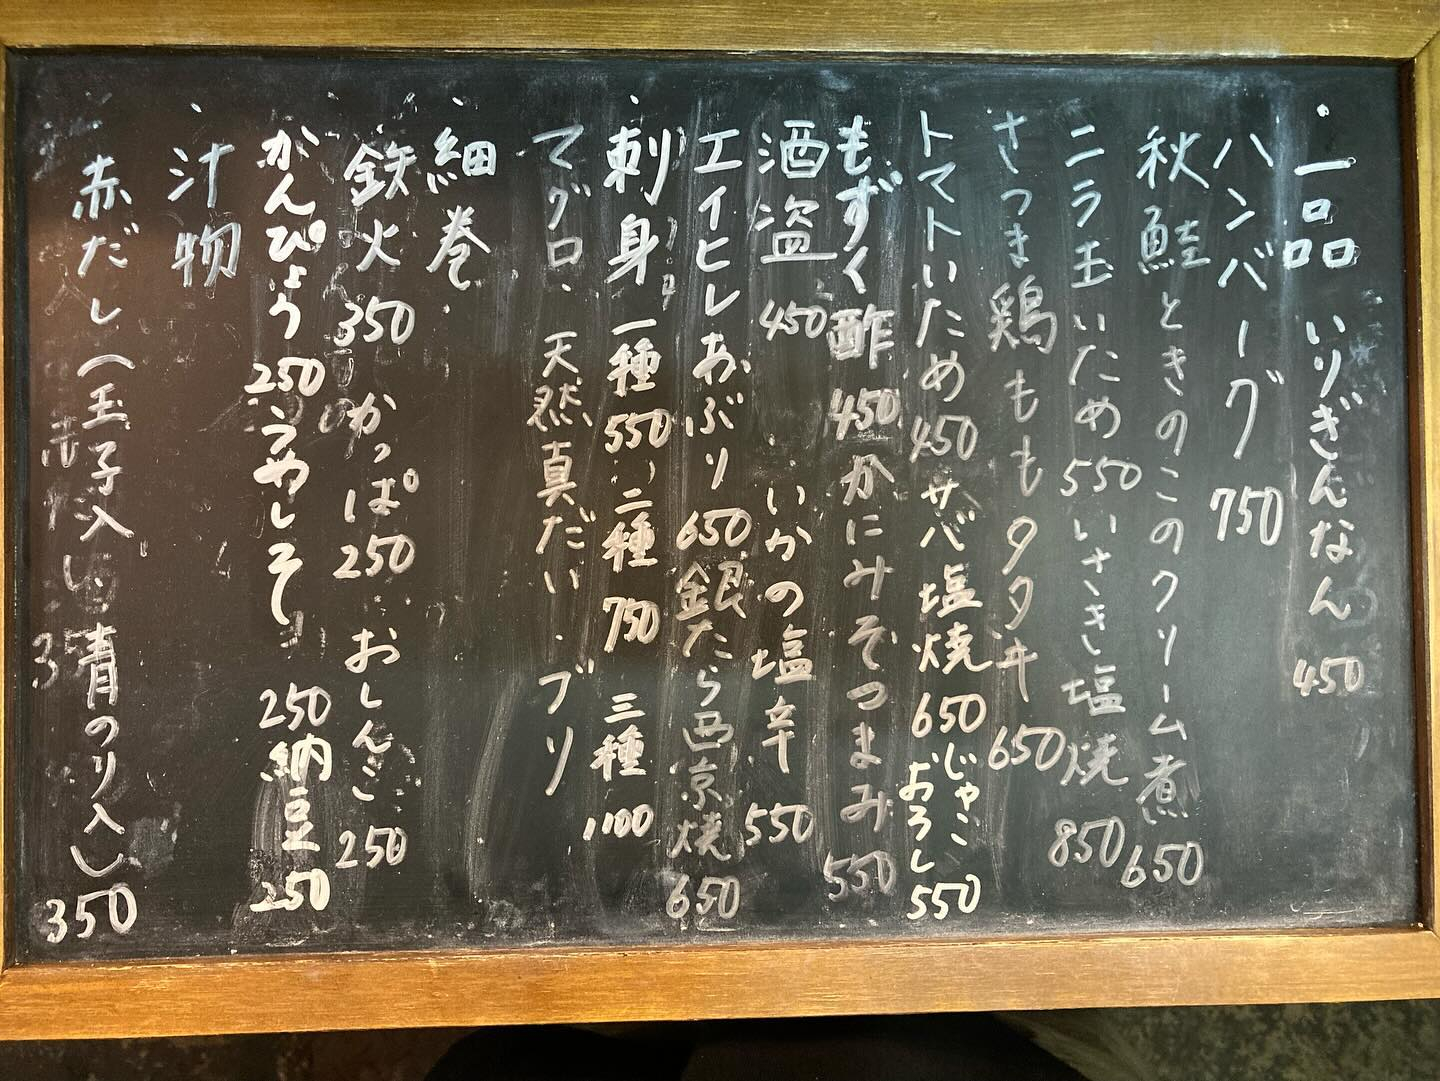 ・一品 いりぎんなん 450
ハンバーグ 750
秋鮭ときのこのクリーム煮 650
ニラ玉いため 550 いさき塩焼 850
さつま鶏もも タタキ 650
トマトいため 450 サバ塩焼 650 じゃこおろし 550
もずく酢 450 かにみそつまみ 550
酒盗 450 いかの塩辛 550
エイヒレあぶり 650 銀たら西京焼 650
・刺身 一種 550 二種 750 三種 1100
マグロ・天然真だい・ブリ
・細巻
鉄火 350 かっぱ 250 おしんこ 250
かんぴょう 250 うめしそ 250 納豆 250
・汁物
赤だし（玉子入り、青のり入り） 350